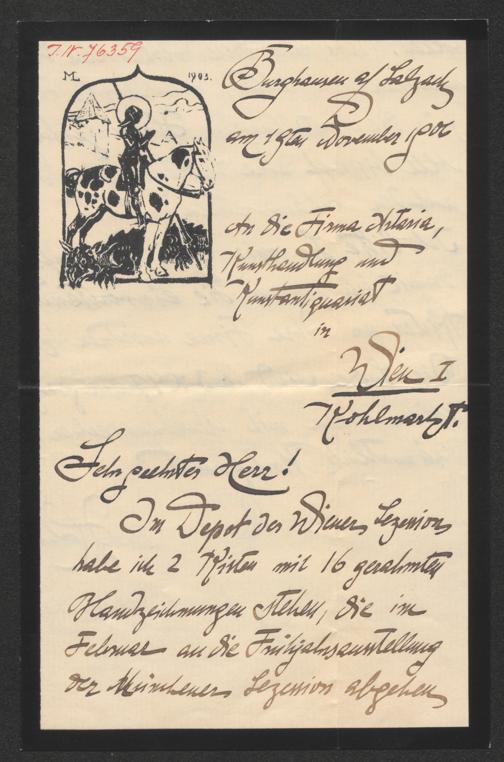 I.N. 76359
ML 1903.
Burghausen a/Salzach
am 19ten November 1906
An die Firma Artaria,
Kunsthandlung und
Kunstantiquariat
in
Wien I
Kohlmarkt 9.
Sehr geehrter Herr!
Im Depot der Wiener Sezession
habe ich 2 Kisten mit 16 gerahmten
Handzeichnungen stehen, die im
Februar an die Frühjahrsausstellung
der Münchener Sezession abgehen